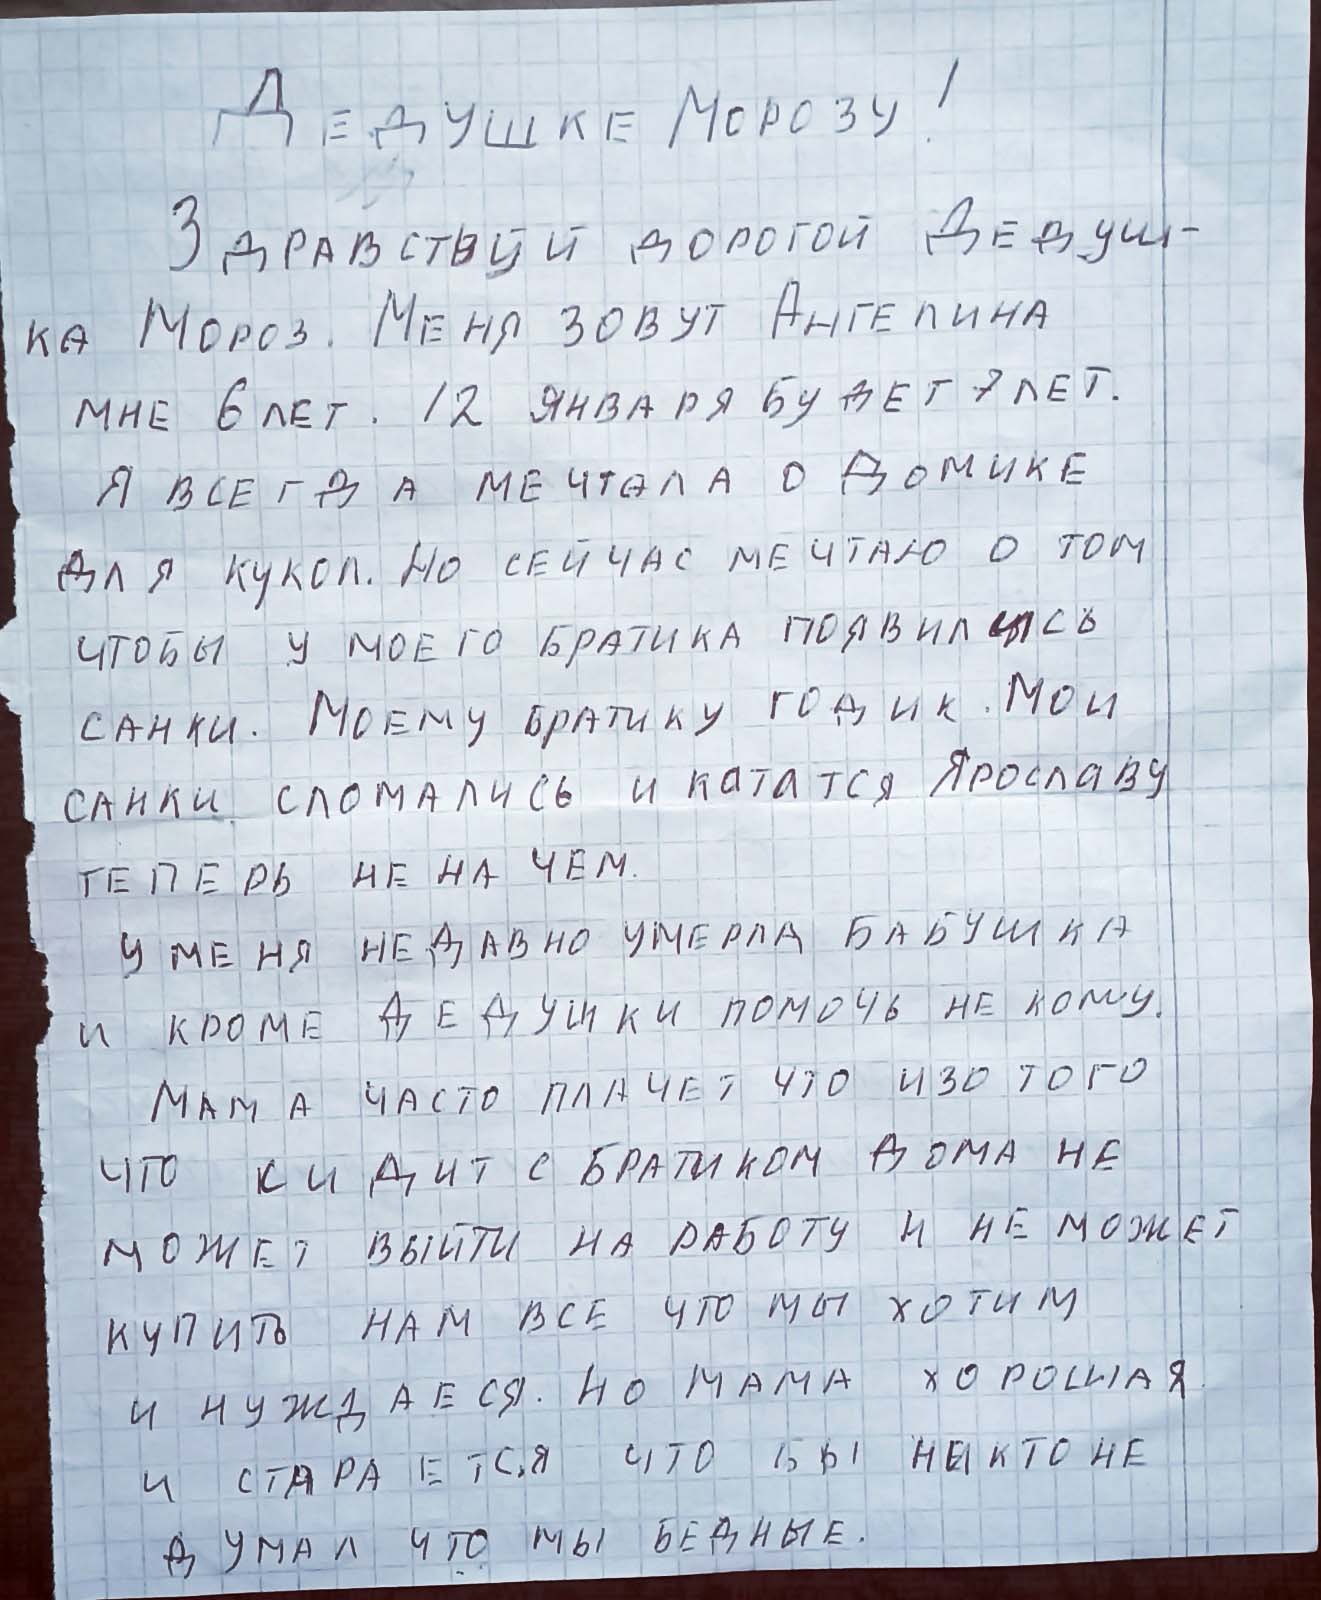 Дедушке Морозу!
Здравствуй дорогой Дедуш-
ка Мороз. Меня зовут Ангелина
мне 6 лет. 12 января будет 7 лет.
Я всегда мечтала о домике
для кукол. Но сейчас мечтаю о том
чтобы у моего братика появились
санки. Моему братику годик. Мои
санки сломались и кататся Ярославу
теперь не на чем.
У меня недавно умерла бабушка
и кроме дедушки помочь не кому.
Мама часто плачет что изо того
что сидит с братиком дома не
может выйти на работу и не может
купить нам все что мы хотим
и нуждаеся. Но мама хорошая
и старается что бы никто не
думал что мы бедные.